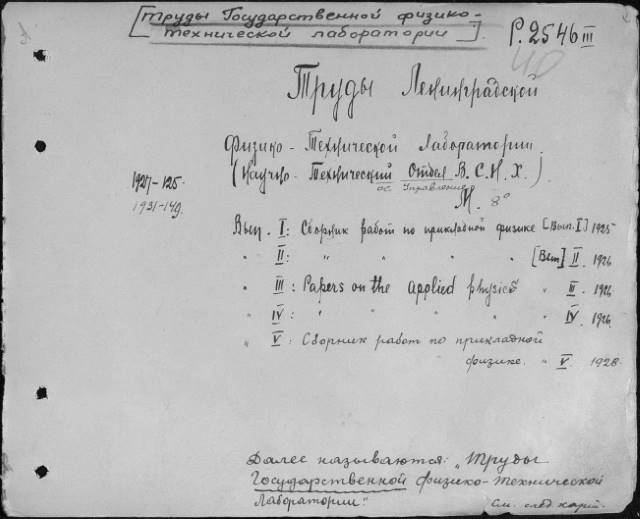 [Труды Государственной физико-
технической лаборатории].
Р.2546 III
40
Труды Ленинградской
Физико-Технической Лаборатории.
(Научно-Технический Отдел В.С.Н.Х.)
Управление
М. 8°
1927-125.
1931-149.
Вып. I: Сборник работ по прикладной физике [Вып. I] 1925
" II: " " " " [Вып] II. 1926
" III: Papers on the applied physics " III. 1926
" IV: " " " " IV. 1926
" V: Сборник работ по прикладной
физике. " V. 1928.
Далее называются: „Труды
Государственной физико-технической
лаборатории"
См. след. карт.